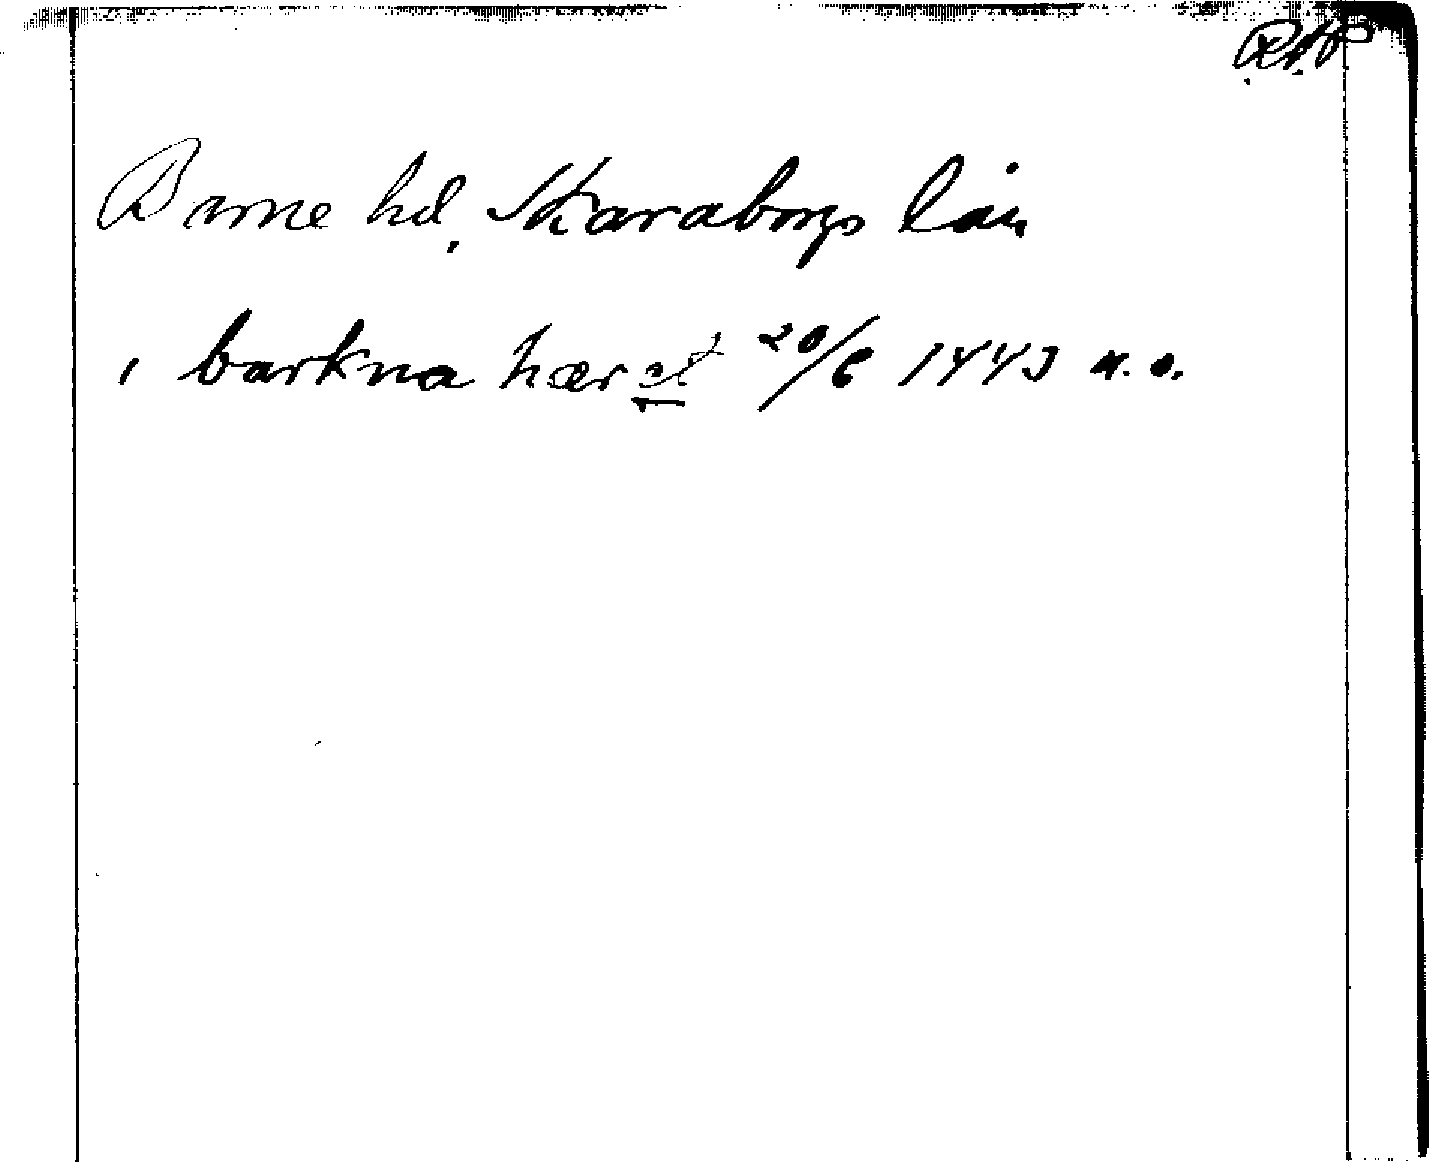 RAP
Barne hd, Skaraborgs län
i barkna hær et 20/6 1443 n.o.